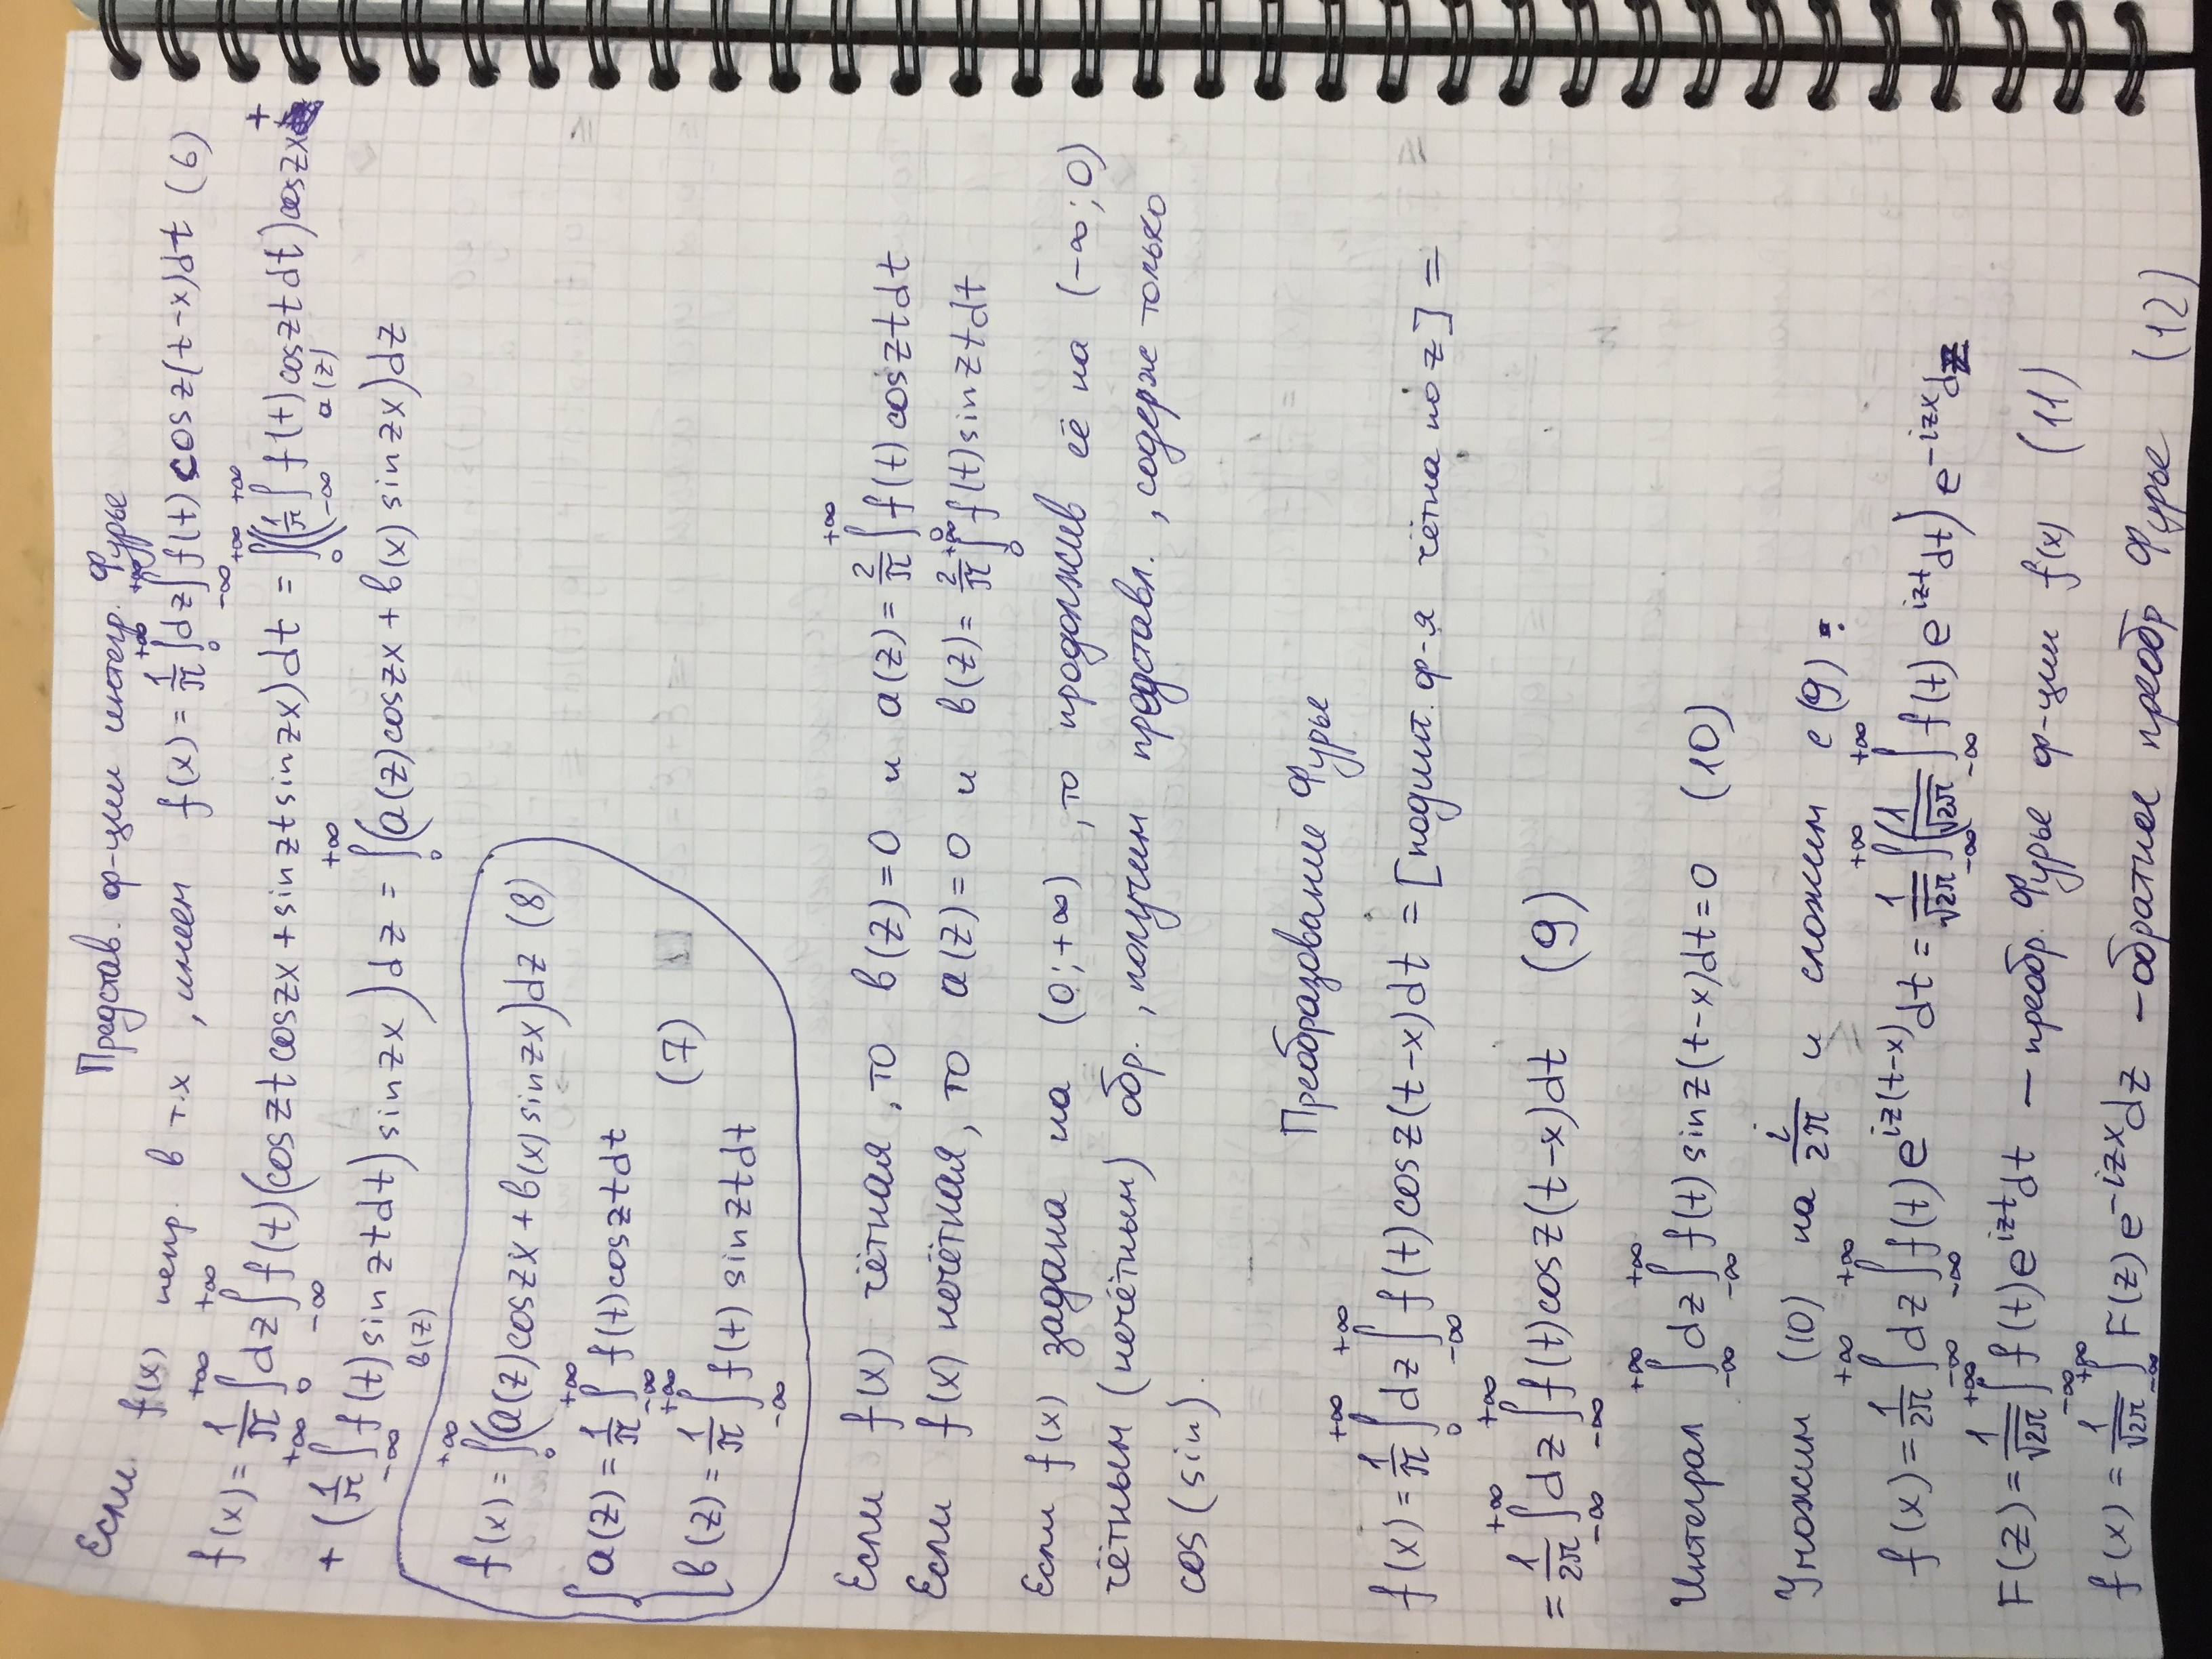 Представ. ф-ции интегр. Фурье
Если f(x) непр. в т.x , имеем f(x) = 1/π ∫₀^{+∞} dz ∫_{-∞}^{+∞} f(t) cos z(t-x)dt (6)
f(x) = 1/π ∫₀^{+∞} dz ∫_{-∞}^{+∞} f(t)(cos zt cos zx + sin zt sin zx)dt = ∫₀^{+∞} ((1/π ∫_{-∞}^{+∞} f(t) cos zt dt) cos zx +
a(z)
+ (1/π ∫_{-∞}^{+∞} f(t) sin zt dt) sin zx) dz = ∫₀^{+∞} (a(z) cos zx + b(x) sin zx)dz
b(z)
f(x) = ∫₀^{+∞} (a(z) cos zx + b(x) sin zx)dz (8)
{ a(z) = 1/π ∫_{-∞}^{+∞} f(t) cos zt dt
b(z) = 1/π ∫_{-∞}^{+∞} f(t) sin zt dt (7)
Если f(x) чётная , то b(z) = 0 и a(z) = 2/π ∫₀^{+∞} f(t) cos zt dt
Если f(x) нечётная, то a(z) = 0 и b(z) = 2/π ∫₀^{+∞} f(t) sin zt dt
Если f(x) задана на (0;+∞) , то продолжив её на (-∞;0)
чётным (нечётным) обр. , получим представл. , содерж только
cos (sin).
Преобразование Фурье
f(x) = 1/π ∫₀^{+∞} dz ∫_{-∞}^{+∞} f(t) cos z(t-x)dt = [подинт. ф-я чётна по z] =
= 1/2π ∫_{-∞}^{+∞} dz ∫_{-∞}^{+∞} f(t) cos z(t-x)dt (9)
Интеграл ∫_{-∞}^{+∞} dz ∫_{-∞}^{+∞} f(t) sin z(t-x)dt = 0 (10)
Умножим (10) на i/2π и сложим с (9) :
f(x) = 1/2π ∫_{-∞}^{+∞} dz ∫_{-∞}^{+∞} f(t) e^{iz(t-x)} dt = 1/√2π ∫_{-∞}^{+∞} (1/√2π ∫_{-∞}^{+∞} f(t) e^{izt} dt) e^{-izx} dz
F(z) = 1/√2π ∫_{-∞}^{+∞} f(t) e^{izt} dt — преобр. Фурье ф-ции f(x) (11)
f(x) = 1/√2π ∫_{-∞}^{+∞} F(z) e^{-izx} dz — обратное преобр Фурье (12)